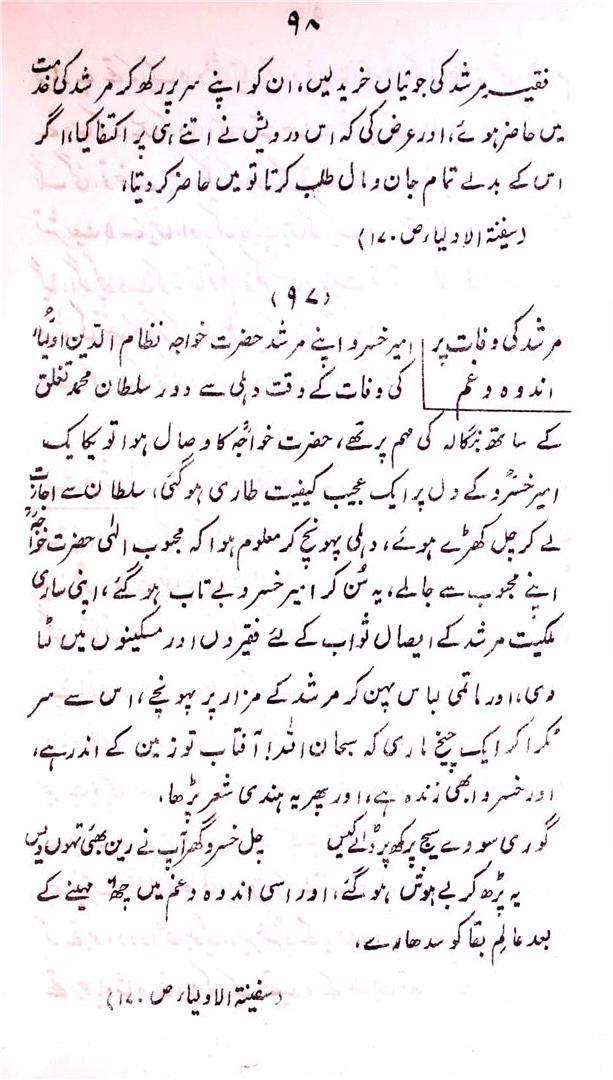 ۹۸
فقیر سے مرشد کی جوتیاں خریدلیں، ان کو اپنے سر پر رکھ کر مرشد کی خدمت
میں حاضر ہوئے، اور عرض کی کہ اس درویش نے اتنے ہی پر اکتفا کیا، اگر
اس کے بدلے تمام جان و مال طلب کرتا تو میں حاضر کر دیتا،
(سفینۃ الاولیاء ص ۱۷۰)
(۹۷)
مرشد کی وفات پر امیر خسرو اپنے مرشد حضرت خواجہ نظام الدین اولیاؒ
اندوہ و غم کی وفات کے وقت دہلی سے دور سلطان محمد تغلق
کے ساتھ بنگالہ کی مہم پر تھے، حضرت خواجہؒ کا وصال ہوا تو یکایک
امیر خسروؒ کے دل پر ایک عجیب کیفیت طاری ہو گئی، سلطان سے اجازت
لے کر چل کھڑے ہوئے، دہلی پہونچ کر معلوم ہوا کہ محبوب الٰہی حضرت خواجہؒ
اپنے محبوب سے جا ملے، یہ سُن کر امیر خسرو بے تاب ہو گئے، اپنی ساری
ملکیت مرشد کے ایصال ثواب کے لئے فقیروں اور مسکینوں میں لٹا
دی، اور ماتمی لباس پہن کر مرشد کے مزار پر پہونچے، اس سے سر
ٹکرا کر ایک چیخ ماری کہ سبحان اللہ! آفتاب تو زمین کے اندر ہے،
اور خسرو ابھی زندہ ہے، اور پھر یہ ہندی شعر پڑھا،
گوری سووے سیج پر مکھ پر ڈالے کیس چل خسرو گھر آپ نے رین بھئی تہوں دیس
یہ پڑھ کر بے ہوش ہو گئے، اور اسی اندوہ و غم میں چھ مہینے کے
بعد عالمِ بقا کو سدھارے،
(سفینۃ الاولیاء ص ۱۷۰)